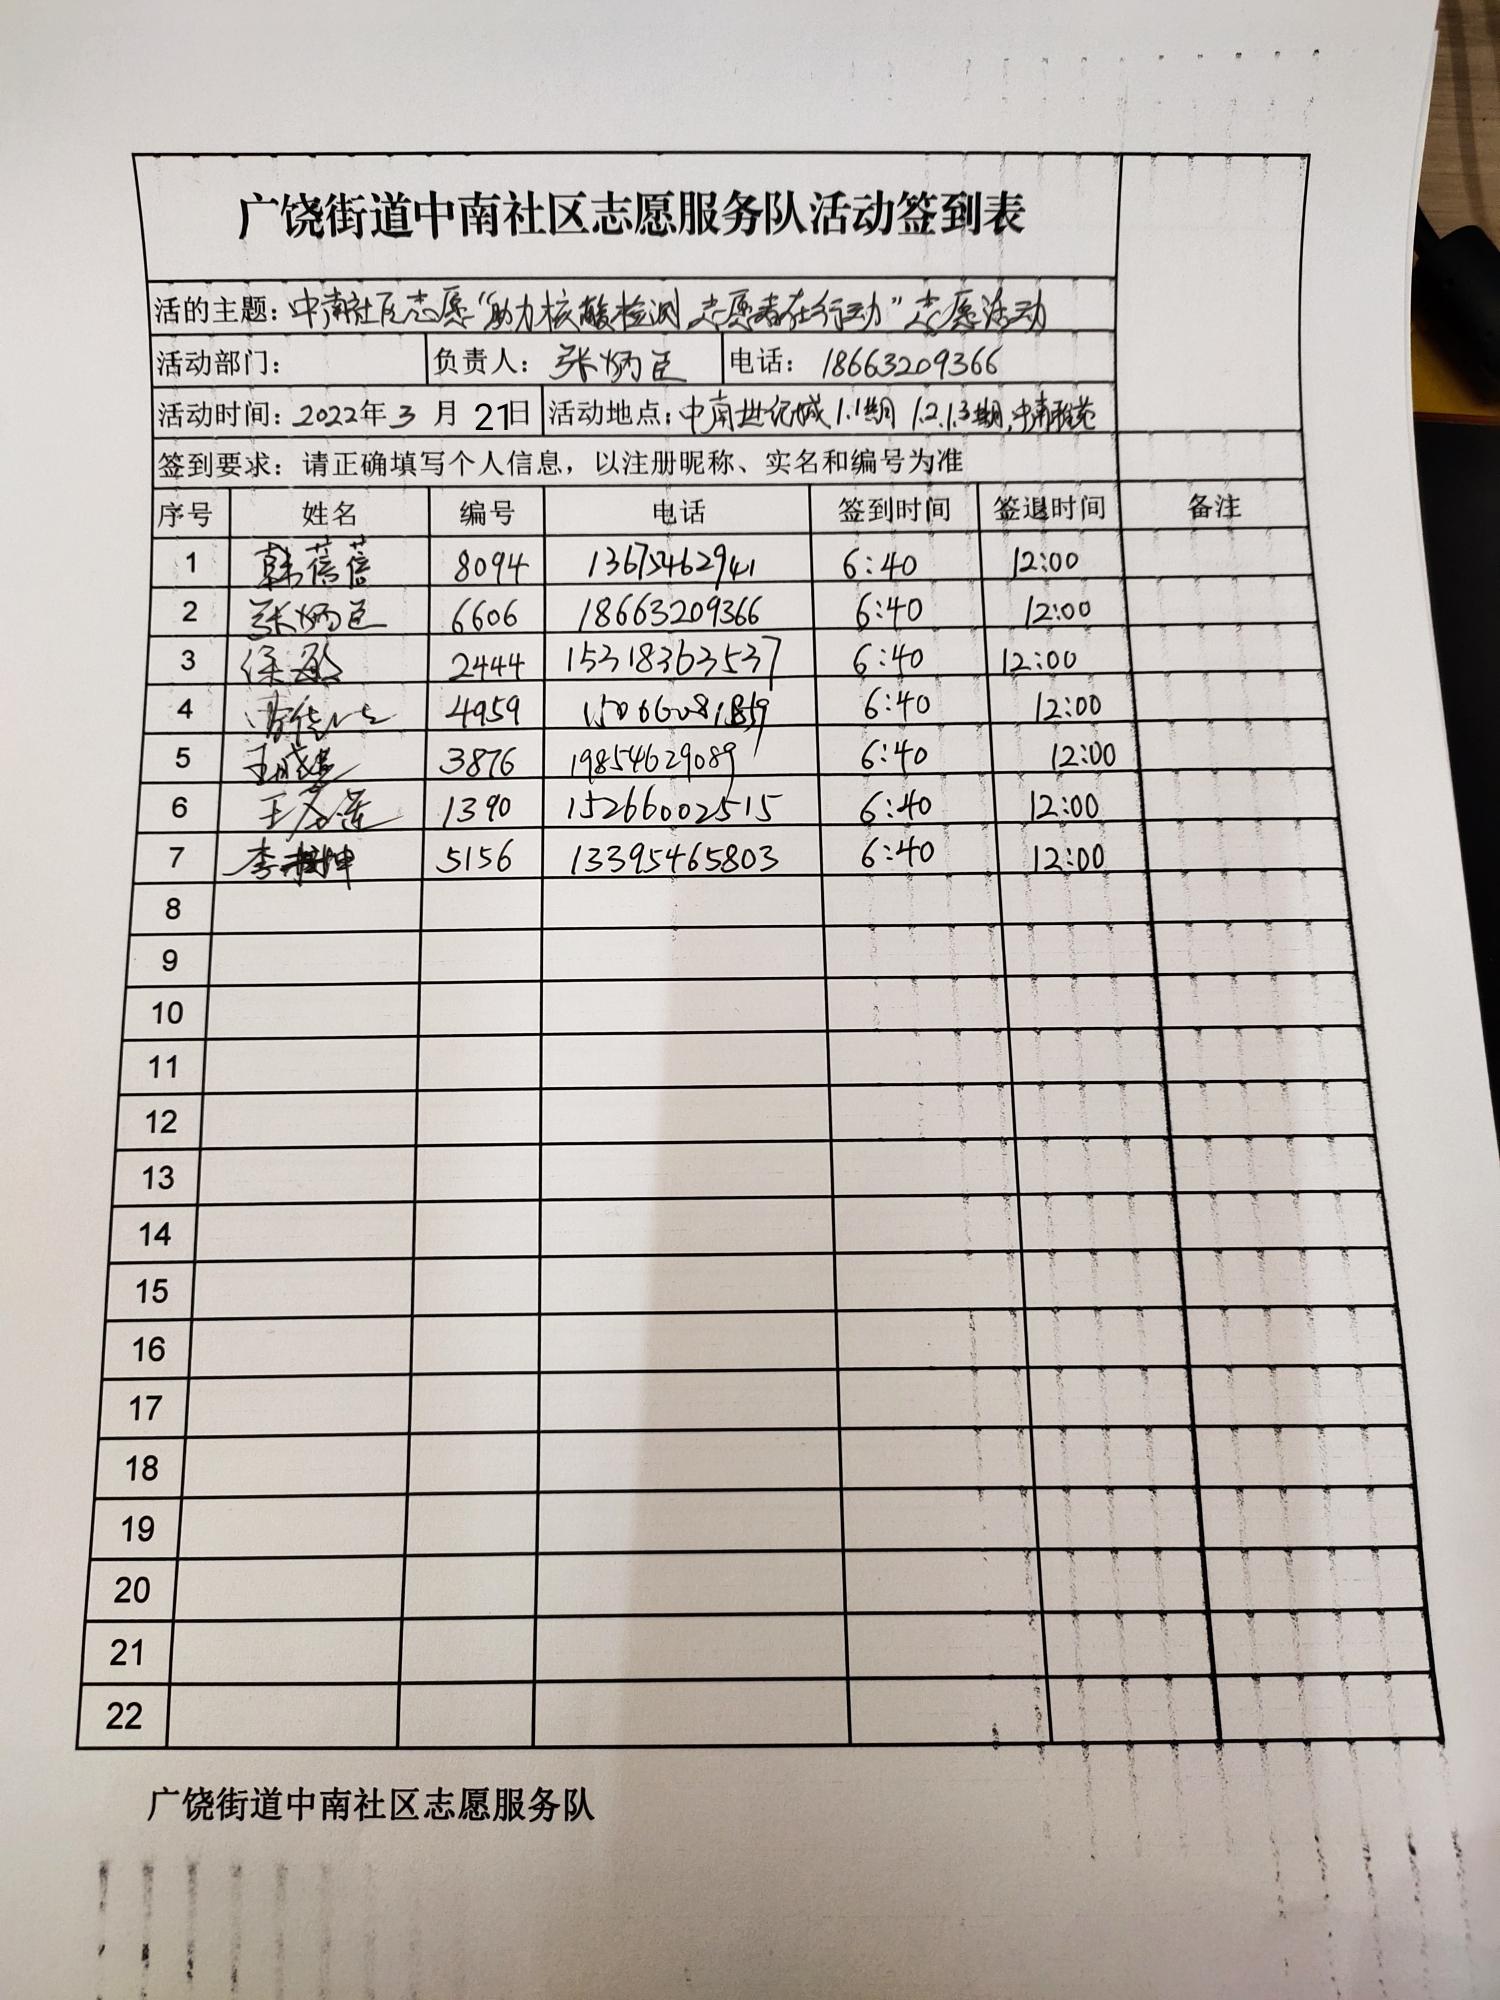 广饶街道中南社区志愿服务队活动签到表
活的主题：中南社区志愿“助力核酸检测 志愿者在行动”志愿活动
活动部门： 负责人：张炳臣 电话：18663209366
活动时间：2022年3月21日 活动地点：中南世纪城1.1期 1.2.1.3期,中南雅苑
签到要求：请正确填写个人信息，以注册昵称、实名和编号为准
序号 姓名 编号 电话 签到时间 签退时间 备注
1 韩蓓蓓 8094 13675462941 6:40 12:00
2 张炳臣 6606 18663209366 6:40 12:00
3 徐敏 2444 15318363537 6:40 12:00
4 4959 6:40 12:00
5 3876 19854629089 6:40 12:00
6 1390 15266002515 6:40 12:00
7 5156 13395465803 6:40 12:00
8
9
10
11
12
13
14
15
16
17
18
19
20
21
22
广饶街道中南社区志愿服务队